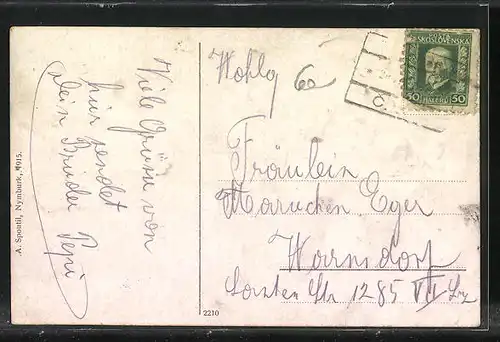 Viele Grüsse von
hier sendet
dein Bruder Pepi
A. Spoutil, Nymburk, 1915.
2210
Wohlg
ČESKOSLOVENSKA
50 HALÉŘŮ 50
Fräulein
Maruchen Eger
Warnsdorf
Str 1285 VII